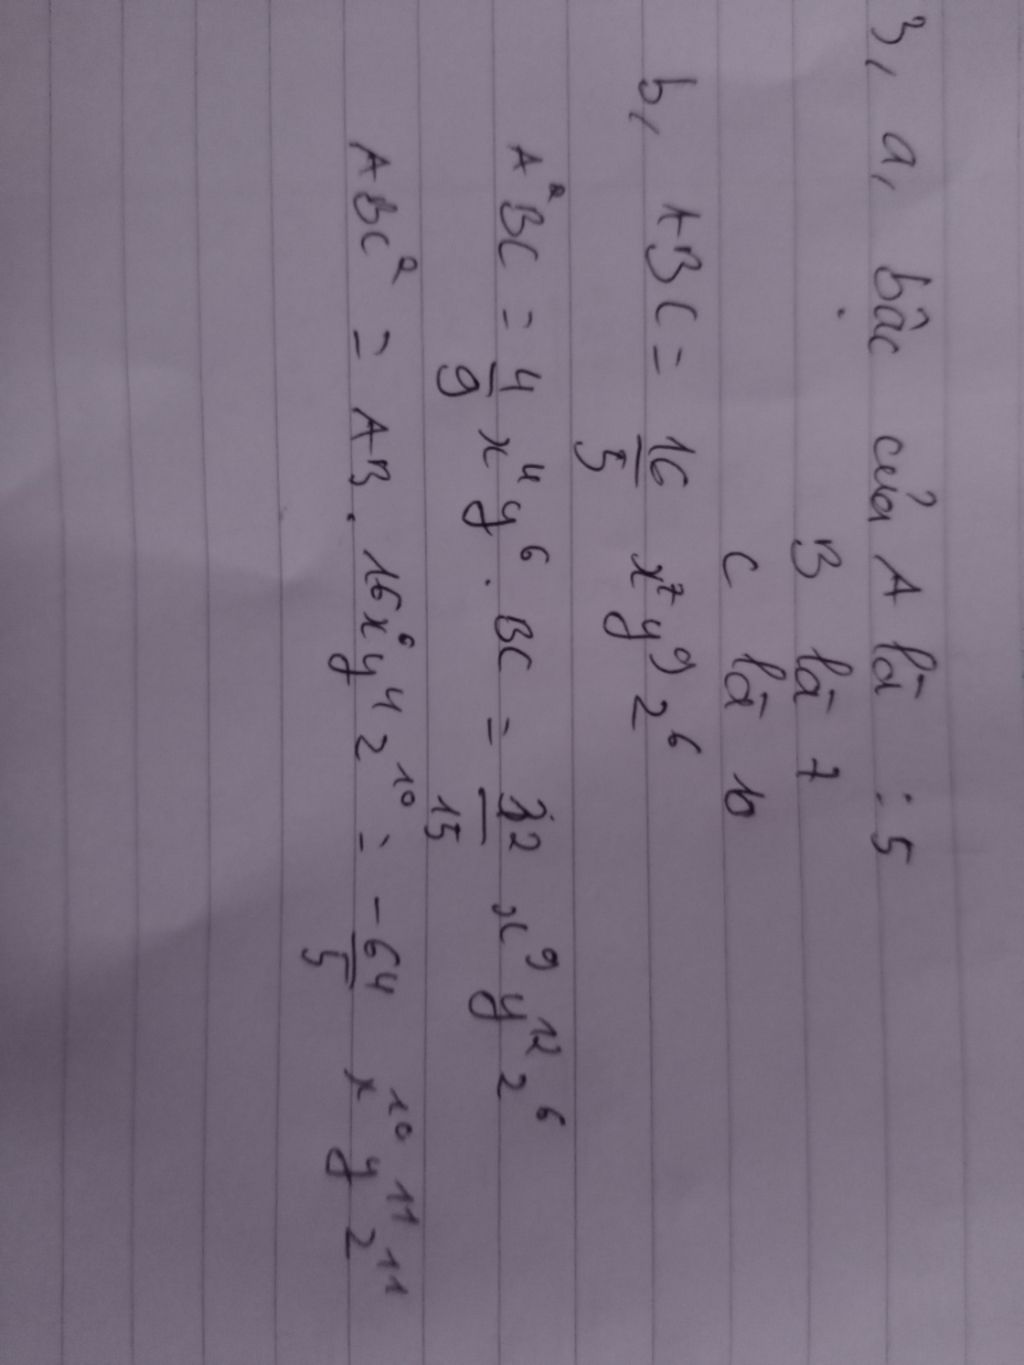 3, a, bâc của A là : 5
B là 7
C là 10
b, ABC = 16/5 x⁷y⁹z⁶
A²BC = 4/9 x⁴y⁶ . BC = 32/15 x⁹y¹²z⁶
ABC² = AB . 16x⁶y⁴z¹⁰ = -64/5 x¹⁰y¹¹z¹¹